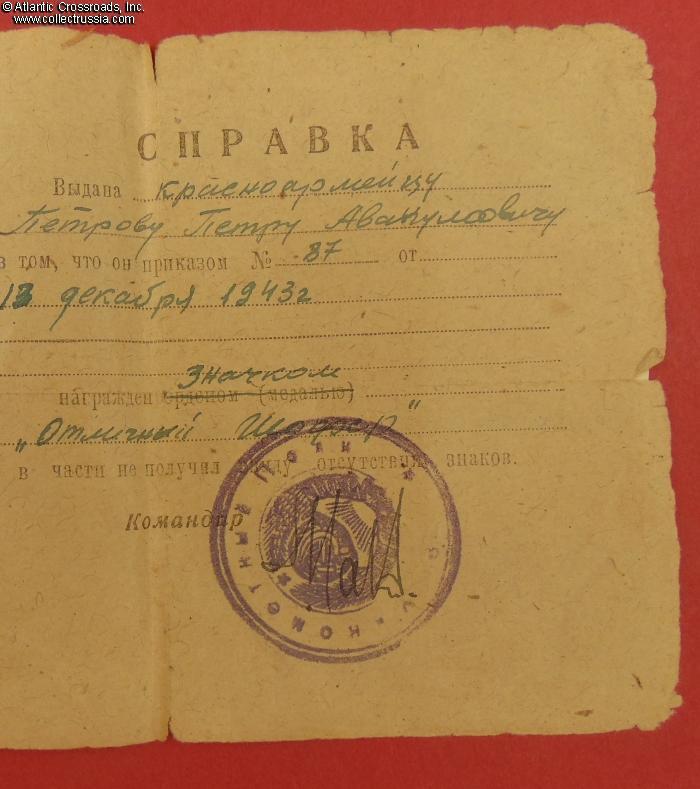 © Atlantic Crossroads, Inc.
www.collectrussia.com
СПРАВКА
Выдана красноармейцу
Петрову Петру
в том, что он приказом № 87 от
13 декабря 1943г
значком
награжден орденом (медалью)
„Отличный Шофер"
в части не получил ввиду отсутствия знаков.
Командир